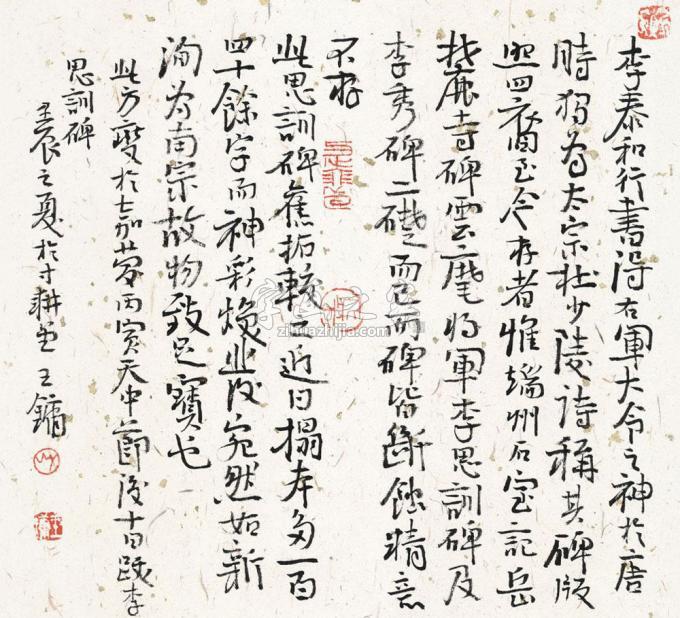 李泰和行書得右軍大令之神於唐
時獨為大宗杜少陵詩稱其碑版
照四裔至今存者惟端州石室記岳
麓寺碑雲麾将軍李思訓碑及
李秀碑二礎而已而碑皆斷蝕精意
不存
此思訓碑舊拓較之近日搨本多一百
四十餘字而神彩煥發宛然如新
洵為南宗故物致足寶也
此方夔於嘉慶丙寅天中節後十日跋李
思訓碑
壬辰之夏於寸耕堂王鏞
zihuazhijia.com